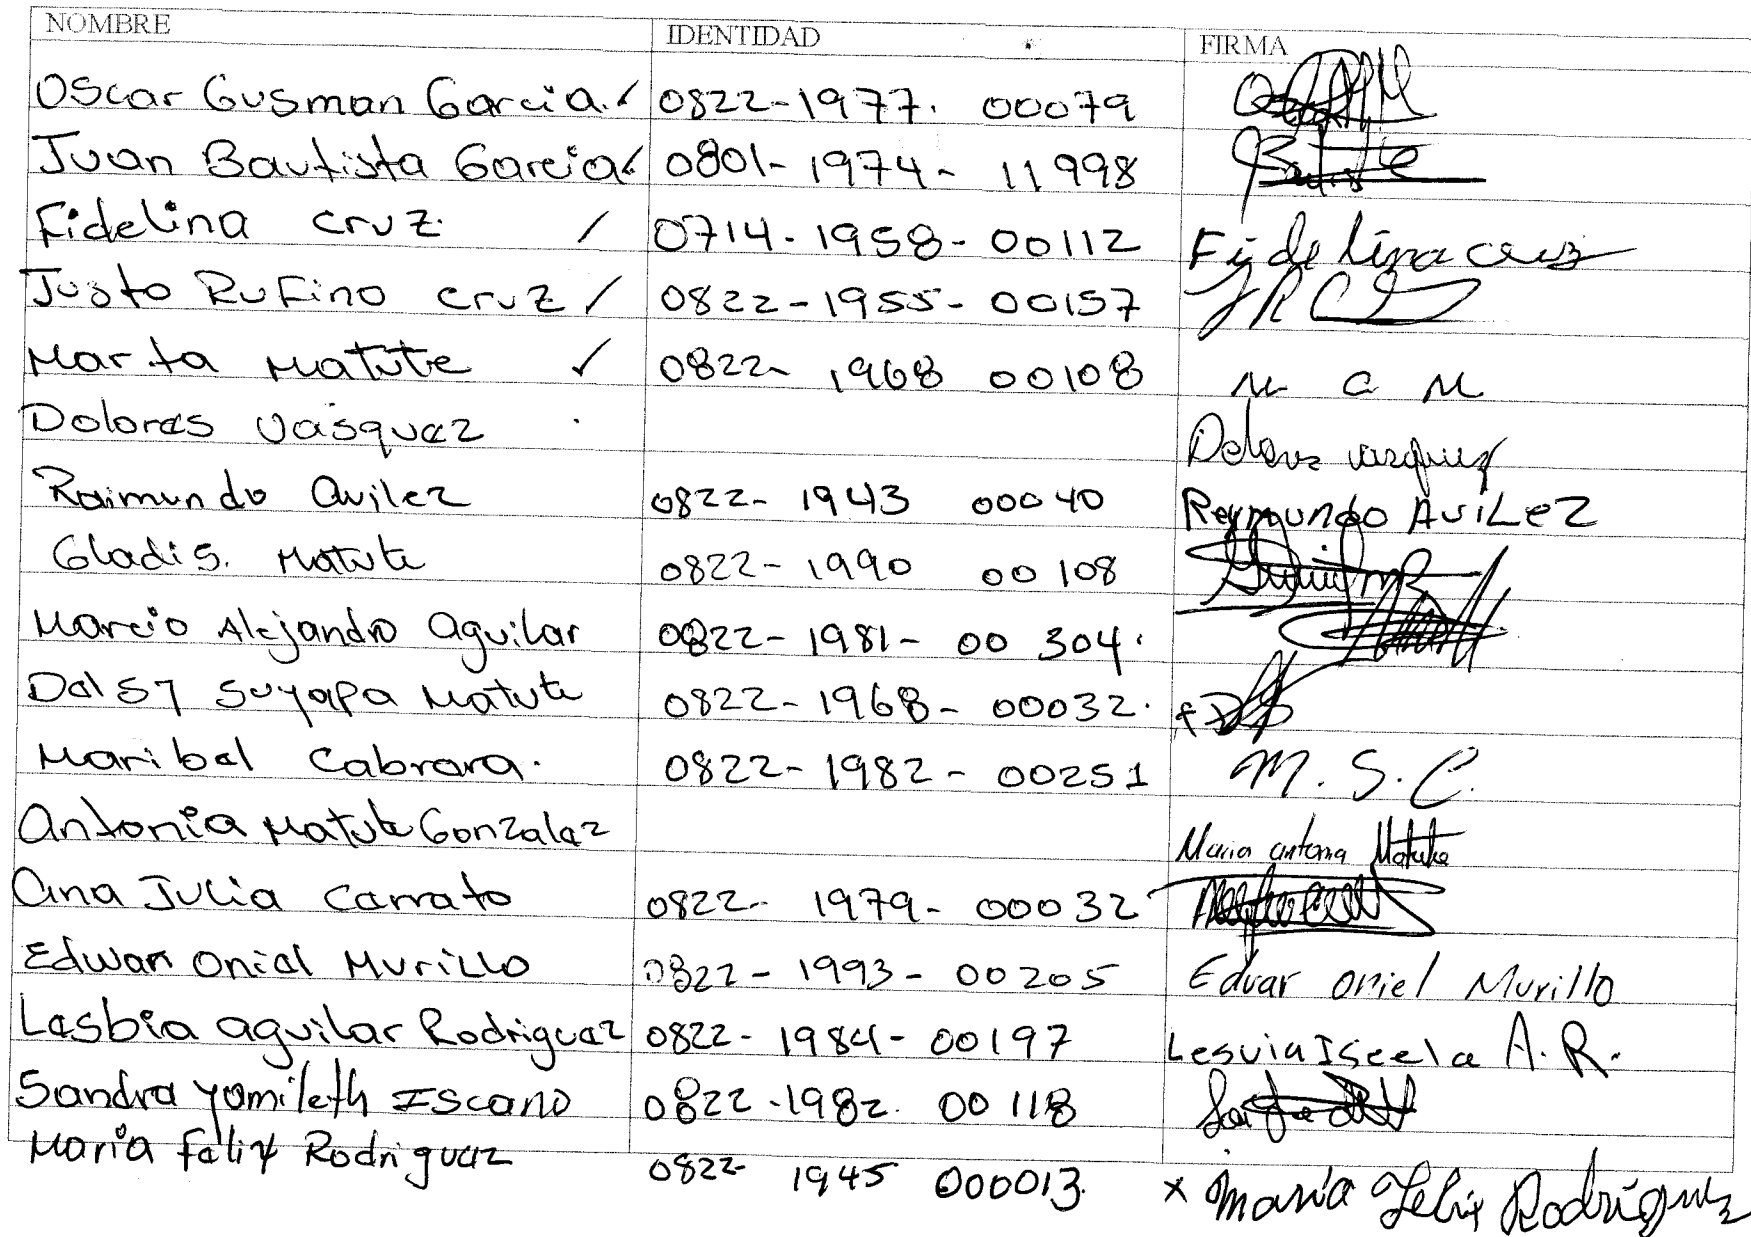 NOMBRE IDENTIDAD FIRMA
Oscar Gusman Garcia. ✓ 0822-1977. 00079
Juan Bautista Garcia ✓ 0801-1974- 11998
Fidelina cruz / 0714-1958-00112 Fidelina cruz
Justo Rufino cruz / 0822-1955-00157 JRC
Marta Matute ✓ 0822- 1968 00108 M a M
Dolores Vasquez Dolores vasquez
Raimundo Avilez 0822- 1943 00040 Reymundo AviLeZ
Gladis. Matute 0822-1990 00108
Marcio Alejandro aguilar 0822-1981-00 304.
Delsy suyapa Matute 0822-1968-00032.
Maribel Cabrera. 0822-1982-00251 M.S.C.
Antonia Matute Gonzalez Maria antonia Matute
Ana Julia Carrato 0822- 1979-00032
Edwan Oniel Murillo 0822-1993-00205 Edvar oniel Murillo
Lesbia aguilar Rodriguez 0822-1984-00197 Lesvia Iscela A.R.
Sandra yamileth Iscano 0822-1982. 00118
Maria Felix Rodriguez 0822- 1945 000013 x Maria Felix Rodriguez